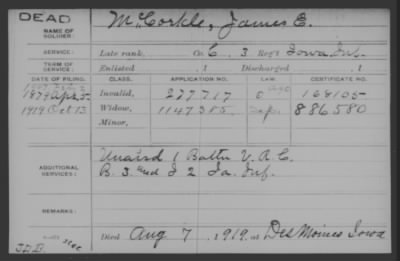 DEAD
NAME OF SOLDIER: McCorkle, James E.
SERVICE: Late rank, Co. C, 3 Reg't Iowa Inf.
TERM OF SERVICE: Enlisted , 1 Discharged , 1
DATE OF FILING. CLASS. APPLICATION NO. LAW. CERTIFICATE NO.
1879 Apr 5 Invalid, 277717 168105
1919 Oct 13 Widow, 1147385 886580
Minor,
ADDITIONAL SERVICES: Unass'd 1 Battn V.R.C.
B. 3 and I 2 Ia. Inf.
REMARKS:
Died Aug 7, 1919, at Des Moines Iowa